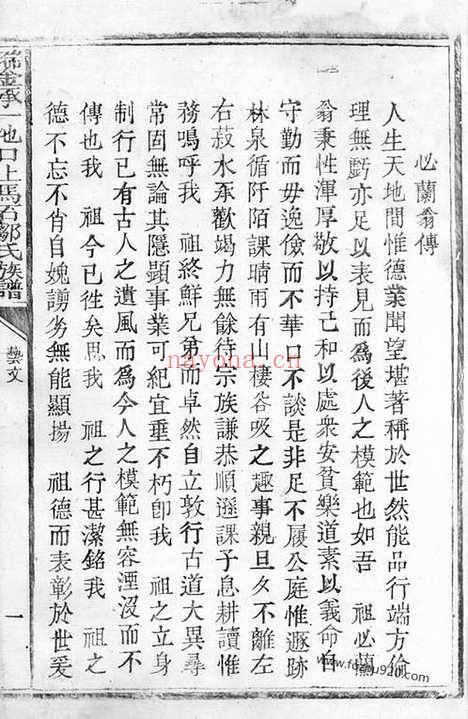 必蘭翁傳
人生天地間惟德業聞望堪著稱於世然能品行端方倫
理無虧亦足以表見而爲後人之模範也如吾 祖必蘭
翁秉性渾厚敬以持己和以處衆安貧樂道素以義命自
守勤而毋逸儉而不華口不談是非足不履公庭惟遯跡
林泉循阡陌課晴雨有山棲谷吸之趣事親旦夕不離左
右菽水承歡竭力無餘待宗族謙恭順遜課子息耕讀惟
務嗚呼我 祖終鮮兄弟而卓然自立敦行古道大異尋
常固無論其隱顯事業可紀宜垂不朽卽我 祖之立身
制行已有古人之遺風而爲今人之模範無容湮沒而不
傳也我 祖今已徃矣思我 祖之行甚潔銘我 祖之
德不忘不肖自媿謭劣無能顯揚 祖德而表彰於世爰
池口上馬石鄒氏族譜
藝文
一
nayona.cn